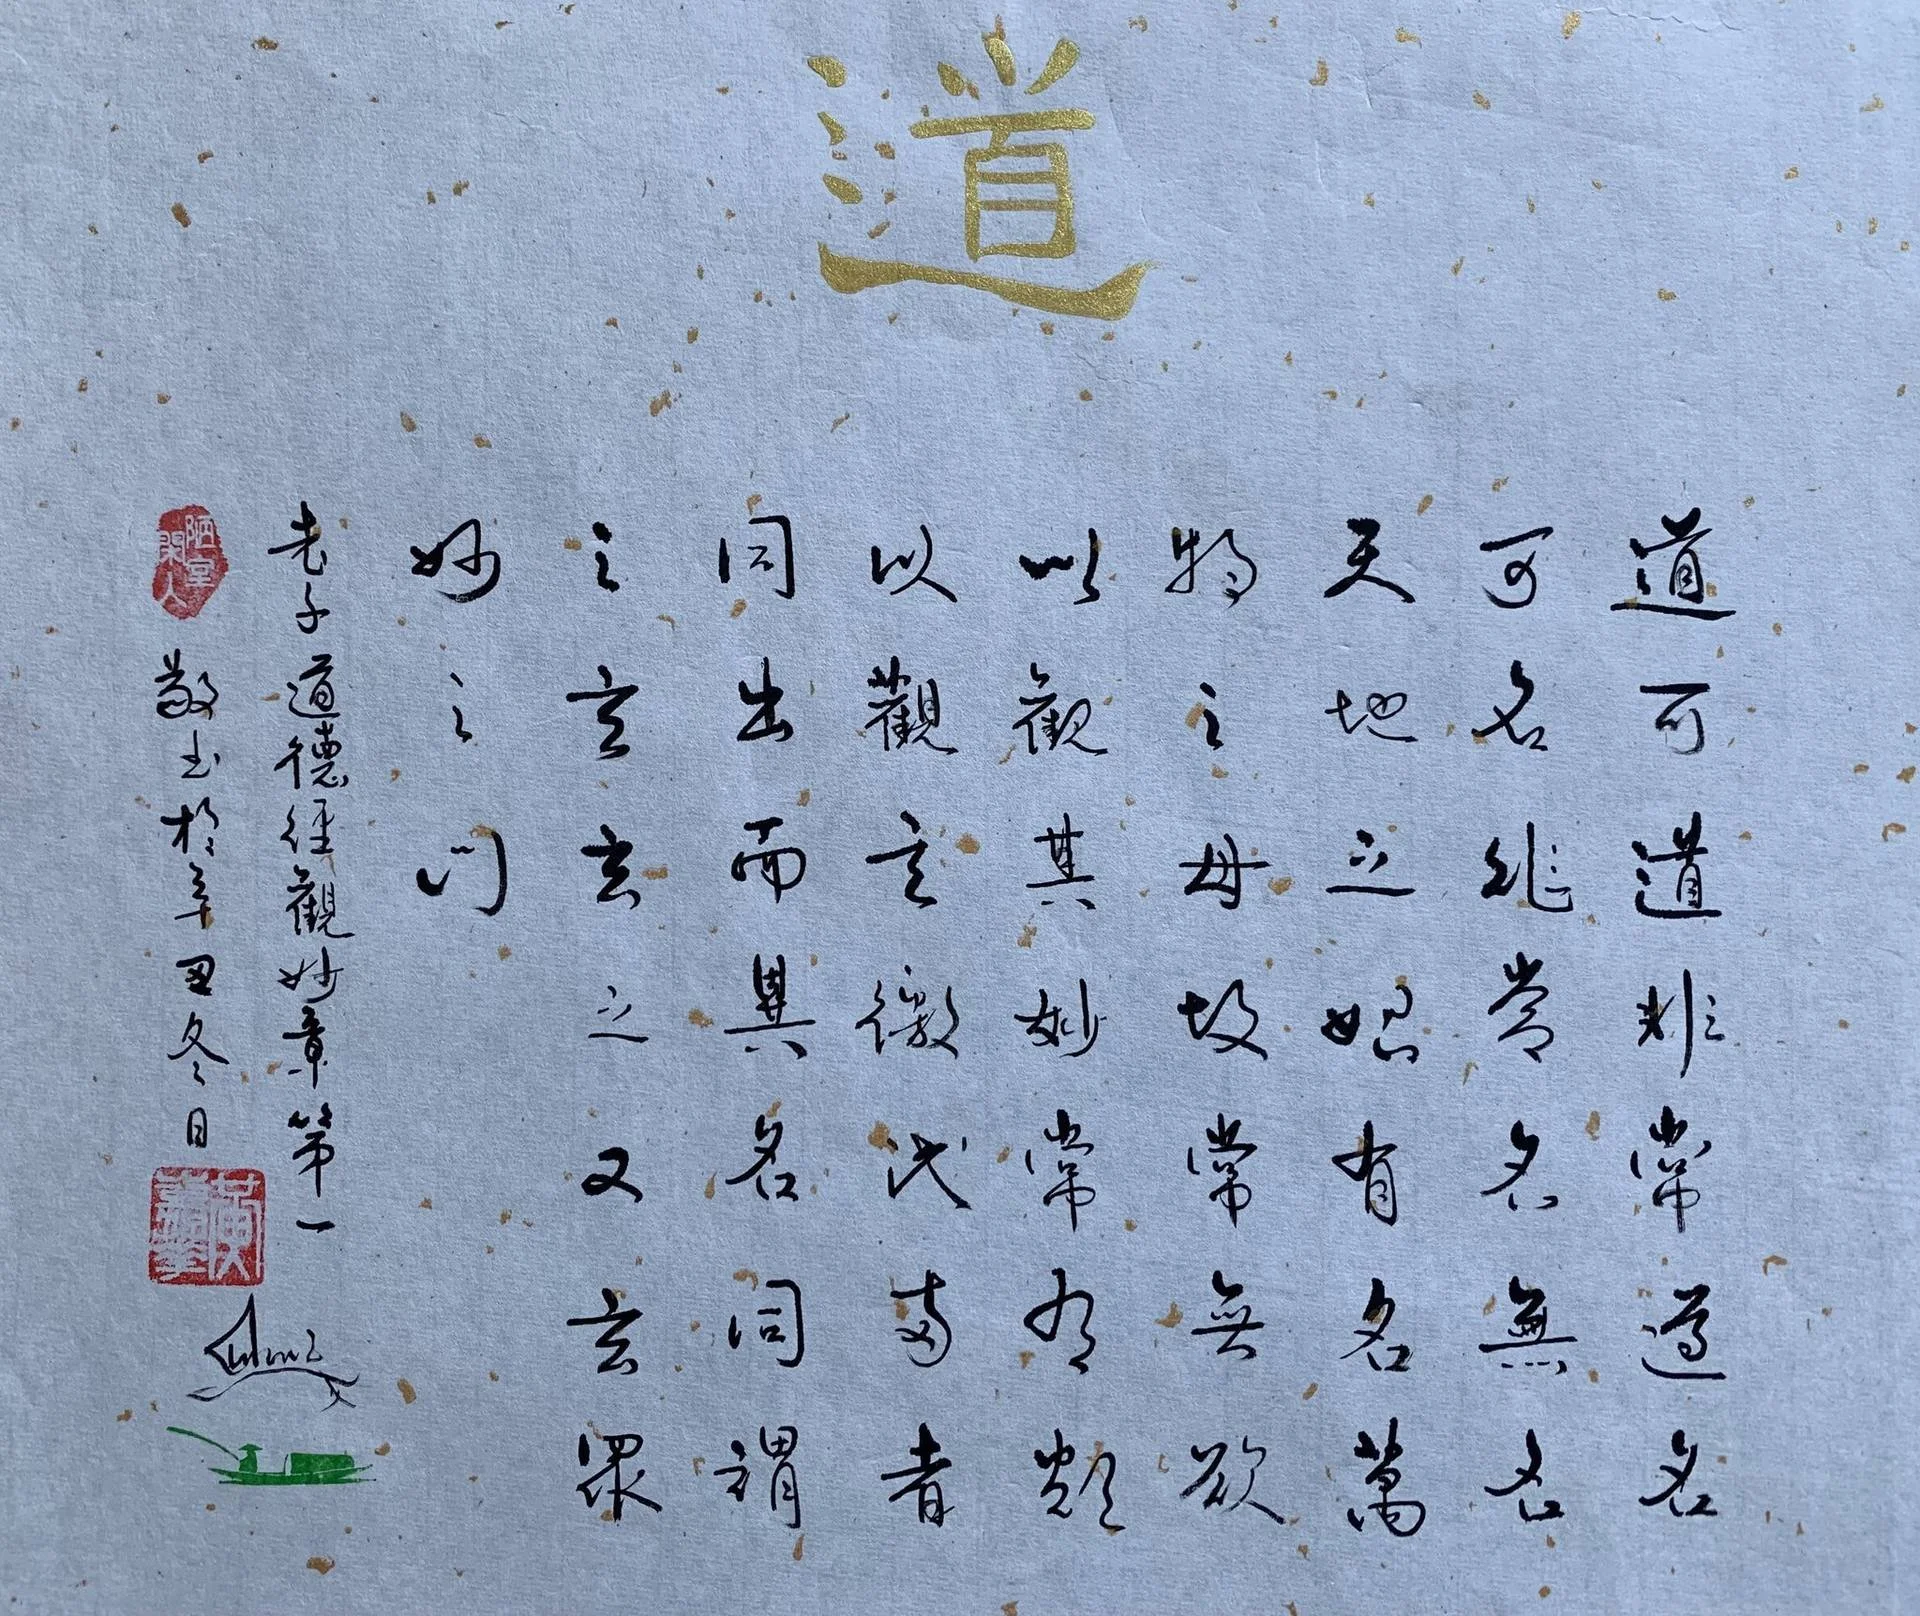 道
道可道非常道名
可名非常名無名
天地之始有名萬
物之母故常無欲
以觀其妙常有欲
以觀其徼此兩者
同出而異名同謂
之玄玄之又玄眾
妙之門
老子道德經觀妙章第一
敬書於辛丑冬日
陋室閑人